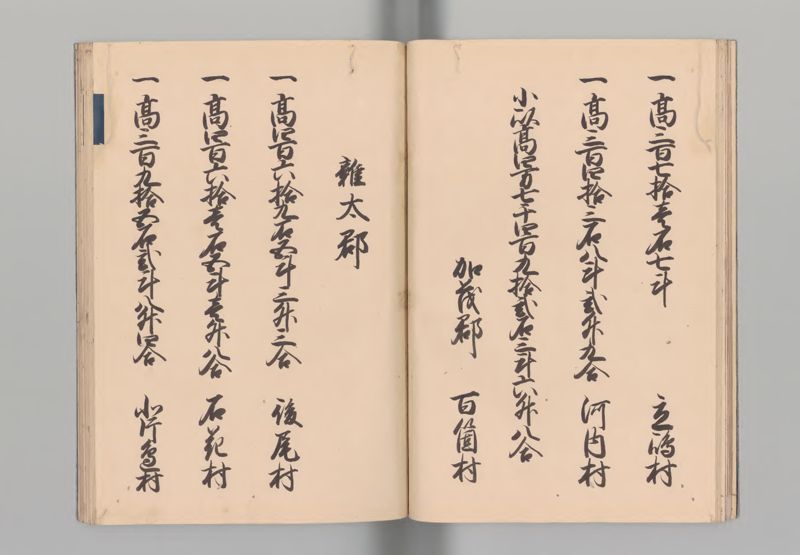 一高三百七拾壱石七斗 立嶋村
一高三百四拾三石八斗弐升九合 河内村
小以高四万七千四百九拾弐石三斗六升八合
加茂郡 百箇村
雑太郡
一高四百六拾九石五斗三升三合 後尾村
一高四百六拾壱石五斗壱升八合 石花村
一高三百九拾五石弐斗八升四合 北片邊村